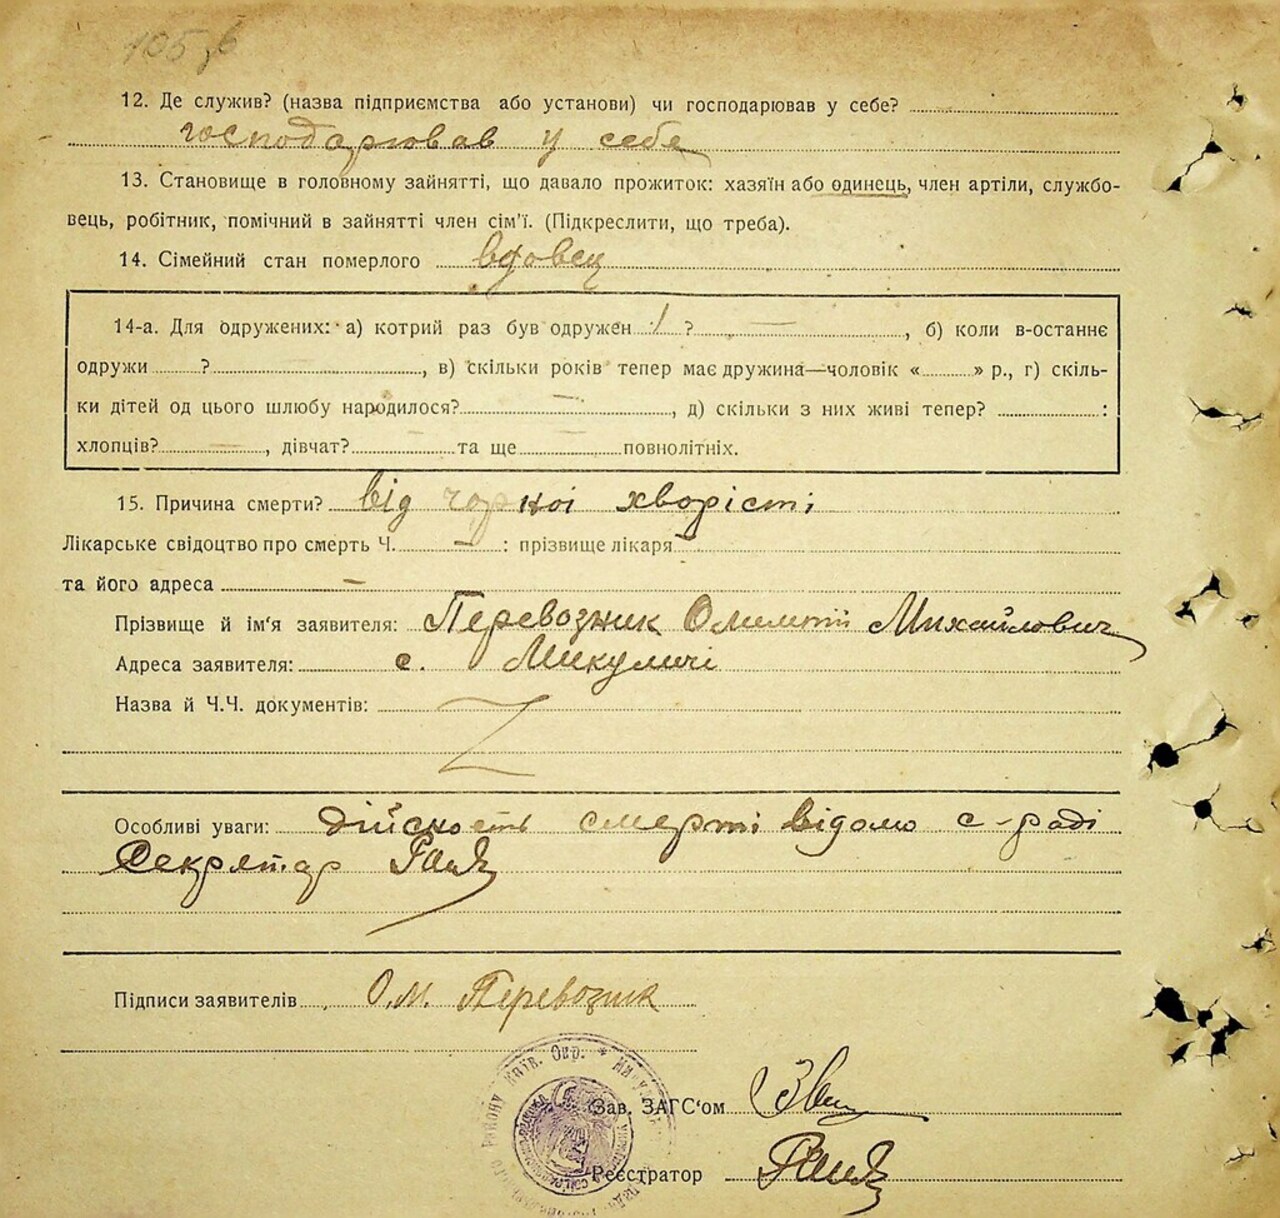 105,б
12. Де служив? (назва підприємства або установи) чи господарював у себе?
господарював у себе
13. Становище в головному зайнятті, що давало прожиток: хазяїн або одинець, член артіли, службо-
вець, робітник, помічний в зайнятті член сім'ї. (Підкреслити, що треба).
14. Сімейний стан померлого вдовец
14-а. Для одружених: а) котрий раз був одружен / ? —, б) коли в-останнє
одружи ? —, в) скільки років тепер має дружина—чоловік « » р., г) скіль-
ки дітей од цього шлюбу народилося? —, д) скільки з них живі тепер? :
хлопців? —, дівчат? — та ще — повнолітніх.
15. Причина смерти? від чорної хворісті
Лікарське свідоцтво про смерть Ч. — : прізвище лікаря
та його адреса —
Прізвище й ім'я заявителя: Перевозник Михайлович
Адреса заявителя: с. Микуличі
Назва й Ч.Ч. документів:
Особливі уваги: дійсность смерті відомо с-раді
Секретар
Підписи заявителів О.М. Перевозник
Київ. Окр. *
Зав. ЗАГС'ом
Реєстратор